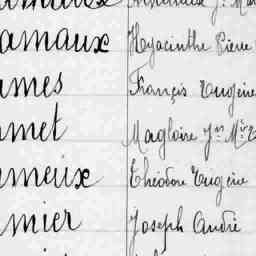 amaux Hyacinthe Pierre
ames François Eugène
met Magloire Jn Mie
meux Théodore Eugène
mier Joseph André